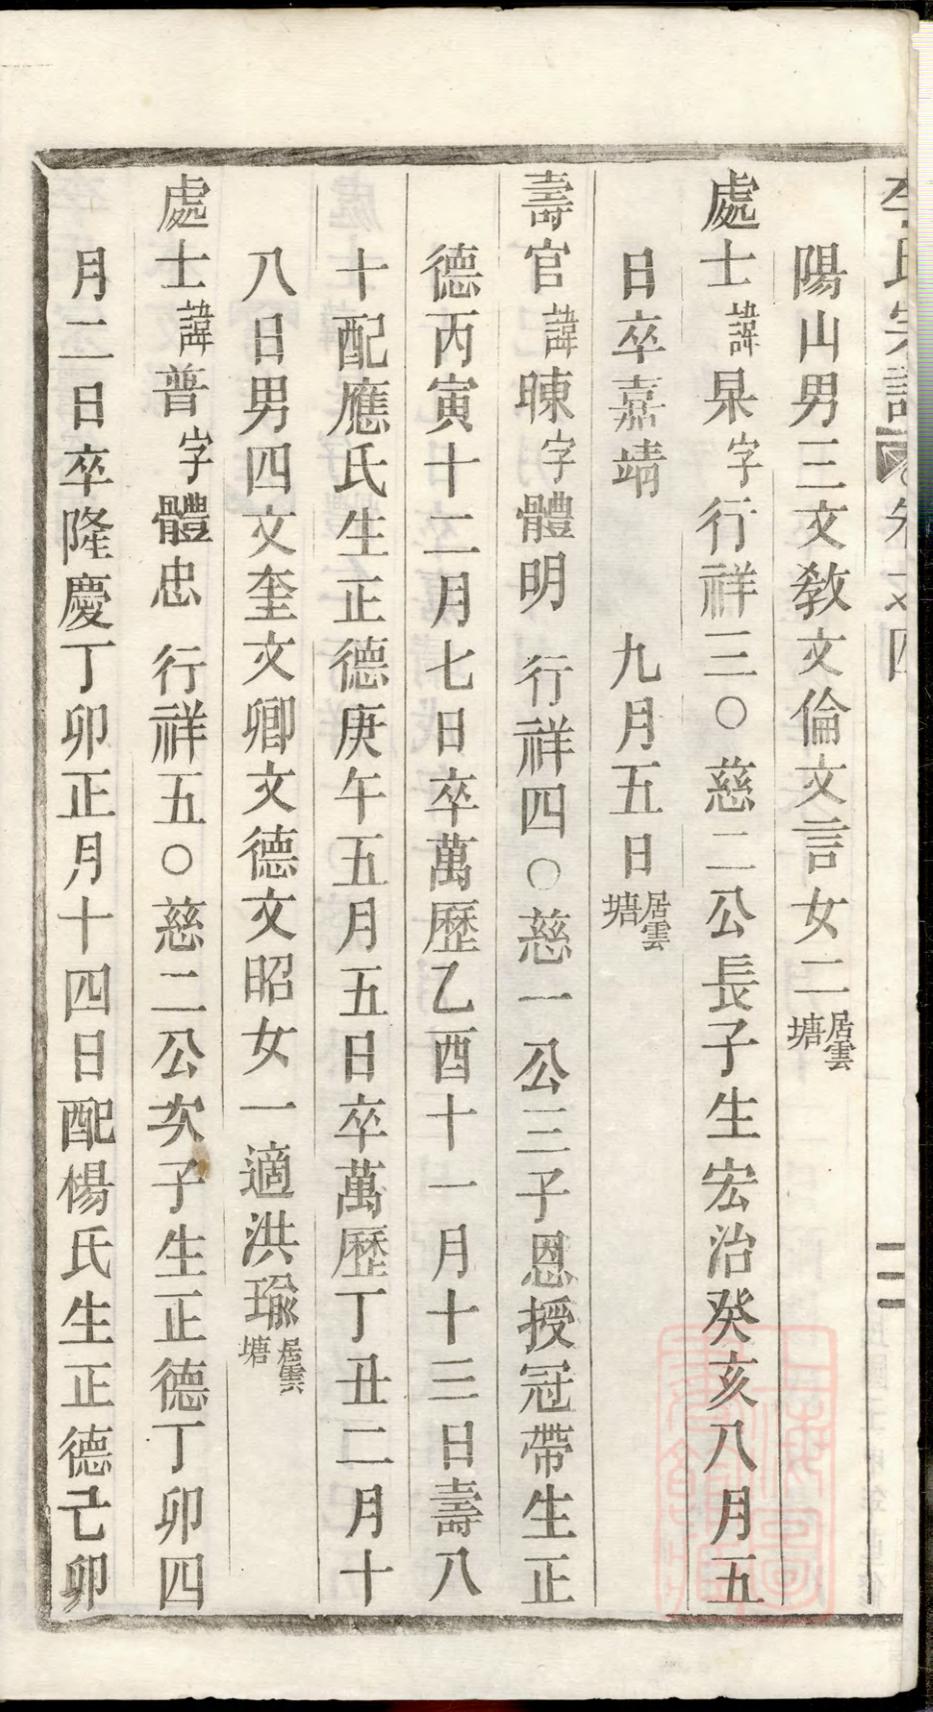 李氏宗譜 卷之四 二
陽山男三文敎文倫文言女二居雲塘
處士諱杲字行祥三○慈二公長子生宏治癸亥八月五
日卒嘉靖　　九月五日居雲塘
壽官諱暕字體明　行祥四○慈一公三子恩授冠帶生正
德丙寅十二月七日卒萬歷乙酉十一月十三日壽八
十配應氏生正德庚午五月五日卒萬歷丁丑二月十
八日男四文奎文卿文德文昭女一適洪瑜居雲塘
處士諱普字體忠　行祥五○慈二公次子生正德丁卯四
月二日卒隆慶丁卯正月十四日配楊氏生正德己卯